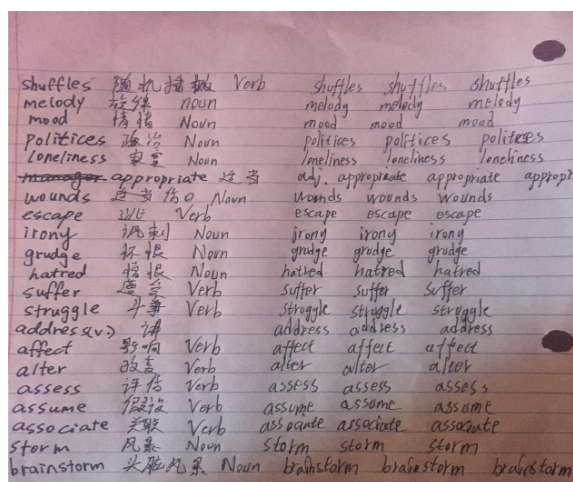 shuffles 随机播放 Verb shuffles shuffles shuffles
melody 旋律 noun melody melody melody
mood 情绪 Noun mood mood mood
politices 政治 Noun politices politices politices
loneliness 寂寞 Noun loneliness loneliness loneliness
manager appropriate 适当 adj. appropriate appropriate appropr
wounds 伤口 Noun wounds wounds wounds
escape Verb escape escape escape
irony 讽刺 Noun irony irony irony
grudge 怀恨 Noun grudge grudge grudge
hatred 憎恨 Noun hatred hatred hatred
suffer 遭受 Verb suffer suffer suffer
struggle 斗争 Verb struggle struggle struggle
address(v.) 讲 address address address
affect 影响 Verb affect affect affect
alter 改变 Verb alter alter alter
assess 评估 Verb assess assess assess
assume 假设 Verb assume assume assume
associate 关联 Verb associate associate associate
storm 风暴 Noun storm storm storm
brainstorm 头脑风暴 Noun brainstorm brainstorm brainstorm